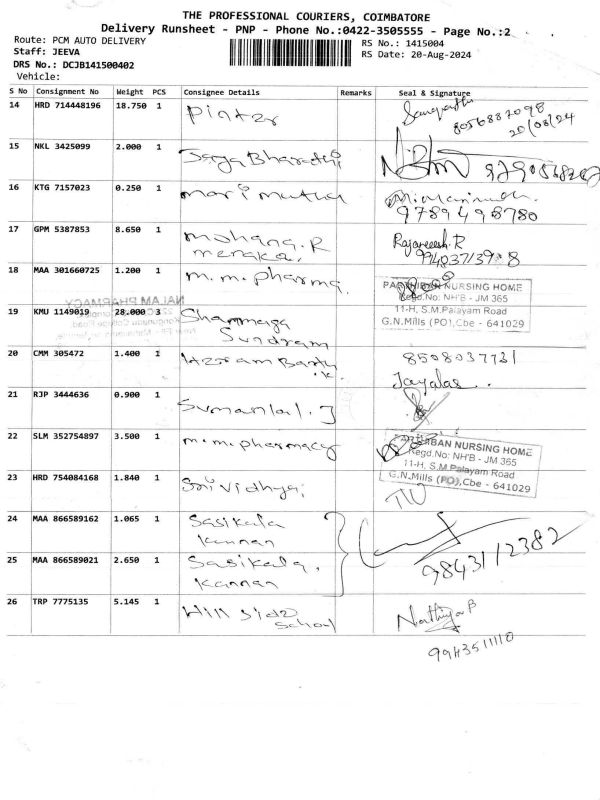 THE PROFESSIONAL COURIERS, COIMBATORE
Delivery Runsheet - PNP - Phone No.:0422-3505555 - Page No.:2
Route: PCM AUTO DELIVERY
RS No.: 1415004
Staff: JEEVA
RS Date: 20-Aug-2024
DRS No.: DCJB141500402
Vehicle:
S No Consignment No Weight PCS Consignee Details Remarks Seal & Signature
14 HRD 714448196 18.750 1
8056887098
20/08/24
15 NKL 3425099 2.000 1 Saya Bharathi
16 KTG 7157023 0.250 1 mari muthu
9789498780
17 GPM 5387853 8.650 1 mohana. R
menaka.
Rajaneesh.R
18 MAA 301660725 1.200 1 m.m.pharma.
PARTHIBAN NURSING HOME
Regd.No: NH'B - JM 365
11-H, S.M.Palayam Road
G.N.Mills (PO),Cbe - 641029
NALAM PHARMACY
19 KMU 1149019 28.000 3 Shanmuga
Sundram
20 CMM 305472 1.400 1
8508037731
21 RJP 3444636 0.900 1 Sumanlal. J
22 SLM 352754897 3.500 1 m.m.pharmacy
PARTHIBAN NURSING HOME
Regd.No: NH'B - JM 365
11-H, S.M.Palayam Road
G.N.Mills (PO),Cbe - 641029
23 HRD 754084168 1.840 1 Sri vidhya
24 MAA 866589162 1.065 1 Sasikala
kannan
9843112382
25 MAA 866589021 2.650 1 Sasikala.
kannan
26 TRP 7775135 5.145 1 Hill side
school
Nathiya P
9943511110